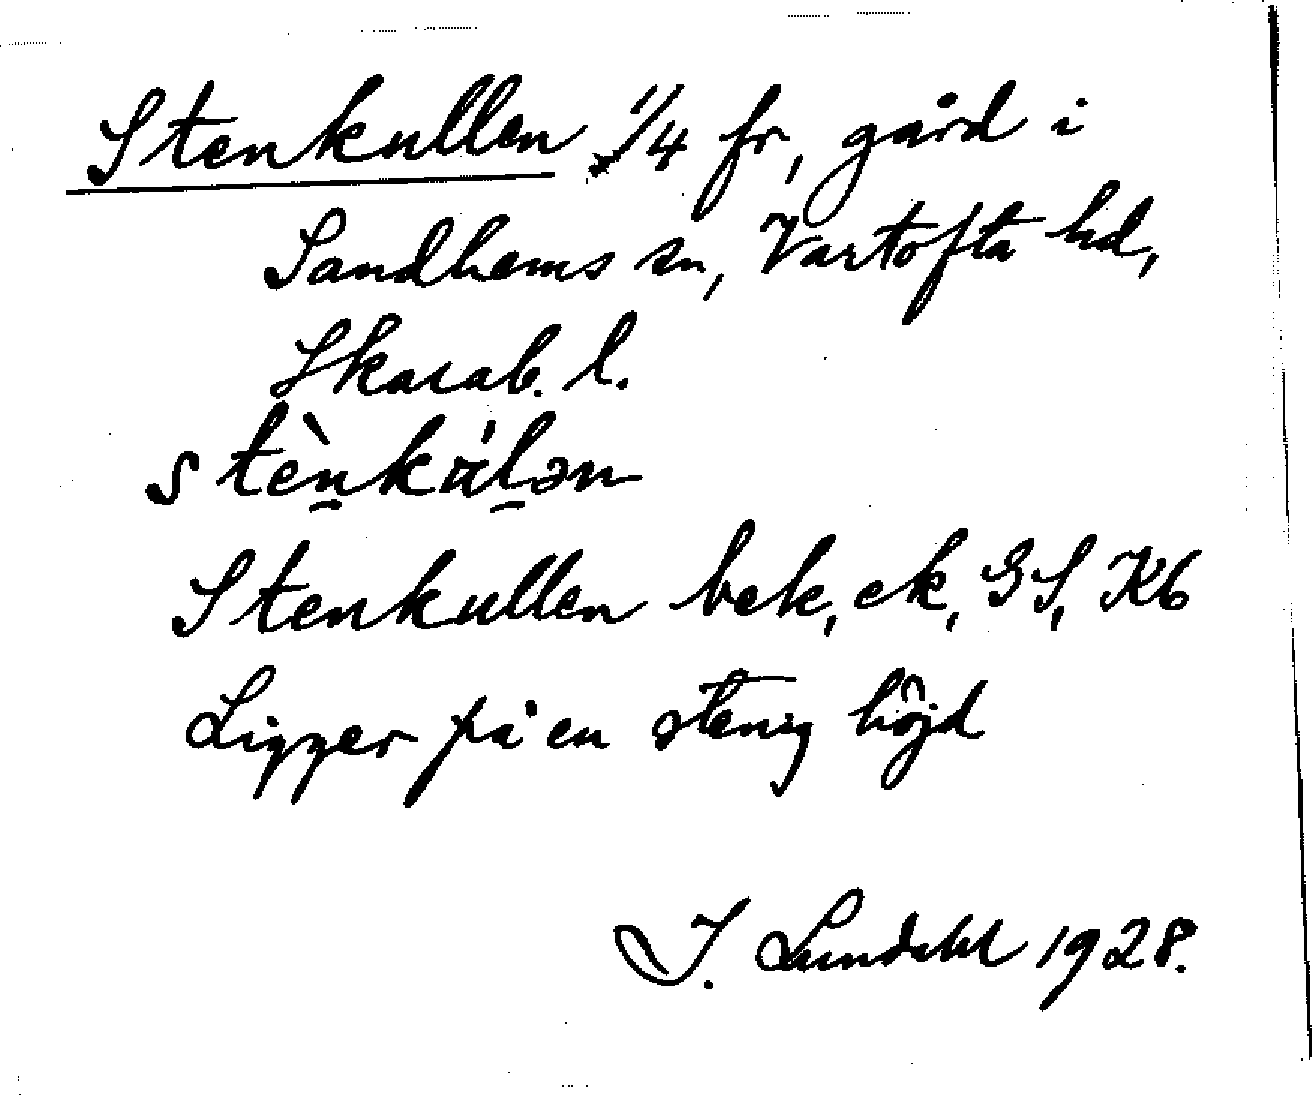 Stenkullen 1/4 fr, gård i
Sandhems sn, Vartofta hd,
Skarab. l.
stènkúlən
Stenkullen bek, ek, GS, Kb
Ligger på en stenig höjd
I. Lundahl 1928.